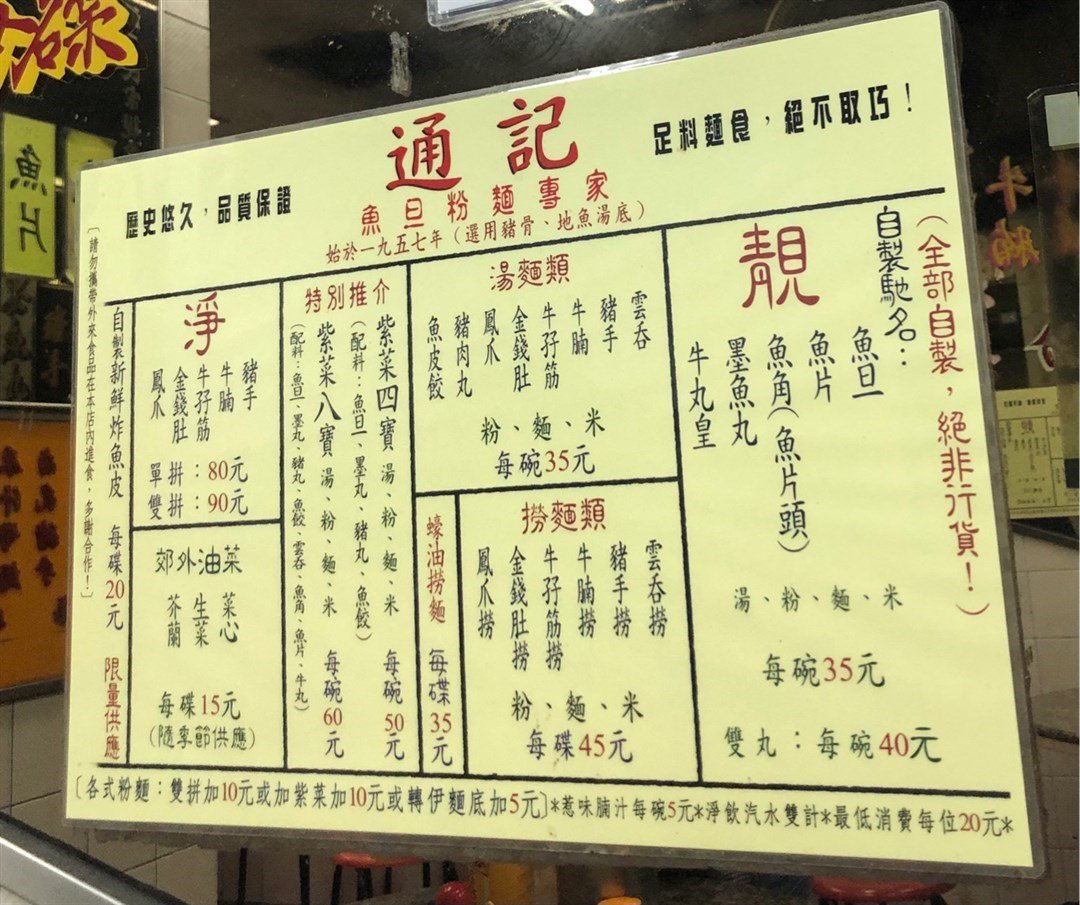 通記
足料麵食，絕不取巧！
歷史悠久，品質保證
魚旦粉麵專家
始於一九五七年（選用豬骨、地魚湯底）
（全部自製，絕非行貨！）
自製馳名：
靚
魚旦
魚片
魚角（魚片頭）
墨魚丸
牛丸皇
湯、粉、麵、米
每碗35元
雙丸：每碗40元
湯麵類
雲吞
豬手
牛腩
牛孖筋
金錢肚
鳳爪
豬肉丸
魚皮餃
粉、麵、米
每碗35元
撈麵類
雲吞撈
豬手撈
牛腩撈
牛孖筋撈
金錢肚撈
鳳爪撈
粉、麵、米
每碟45元
蠔油撈麵 每碟35元
特別推介
紫菜四寶 湯、粉、麵、米 每碗50元
（配料：魚旦、墨丸、豬丸、魚餃）
紫菜八寶 湯、粉、麵、米 每碗60元
（配料：魚旦、墨丸、豬丸、魚餃、雲吞、魚角、魚片、牛丸）
淨
豬手
牛腩
牛孖筋
金錢肚
鳳爪
單拼：80元
雙拼：90元
郊外油菜
菜心
生菜
芥蘭
每碟15元
（隨季節供應）
自製新鮮炸魚皮 每碟20元 限量供應
〔請勿攜帶外來食品在本店內進食，多謝合作！〕
〔各式粉麵：雙拼加10元或加紫菜加10元或轉伊麵底加5元〕*惹味腩汁每碗5元*淨飲汽水雙計*最低消費每位20元*
魚片
牛腩